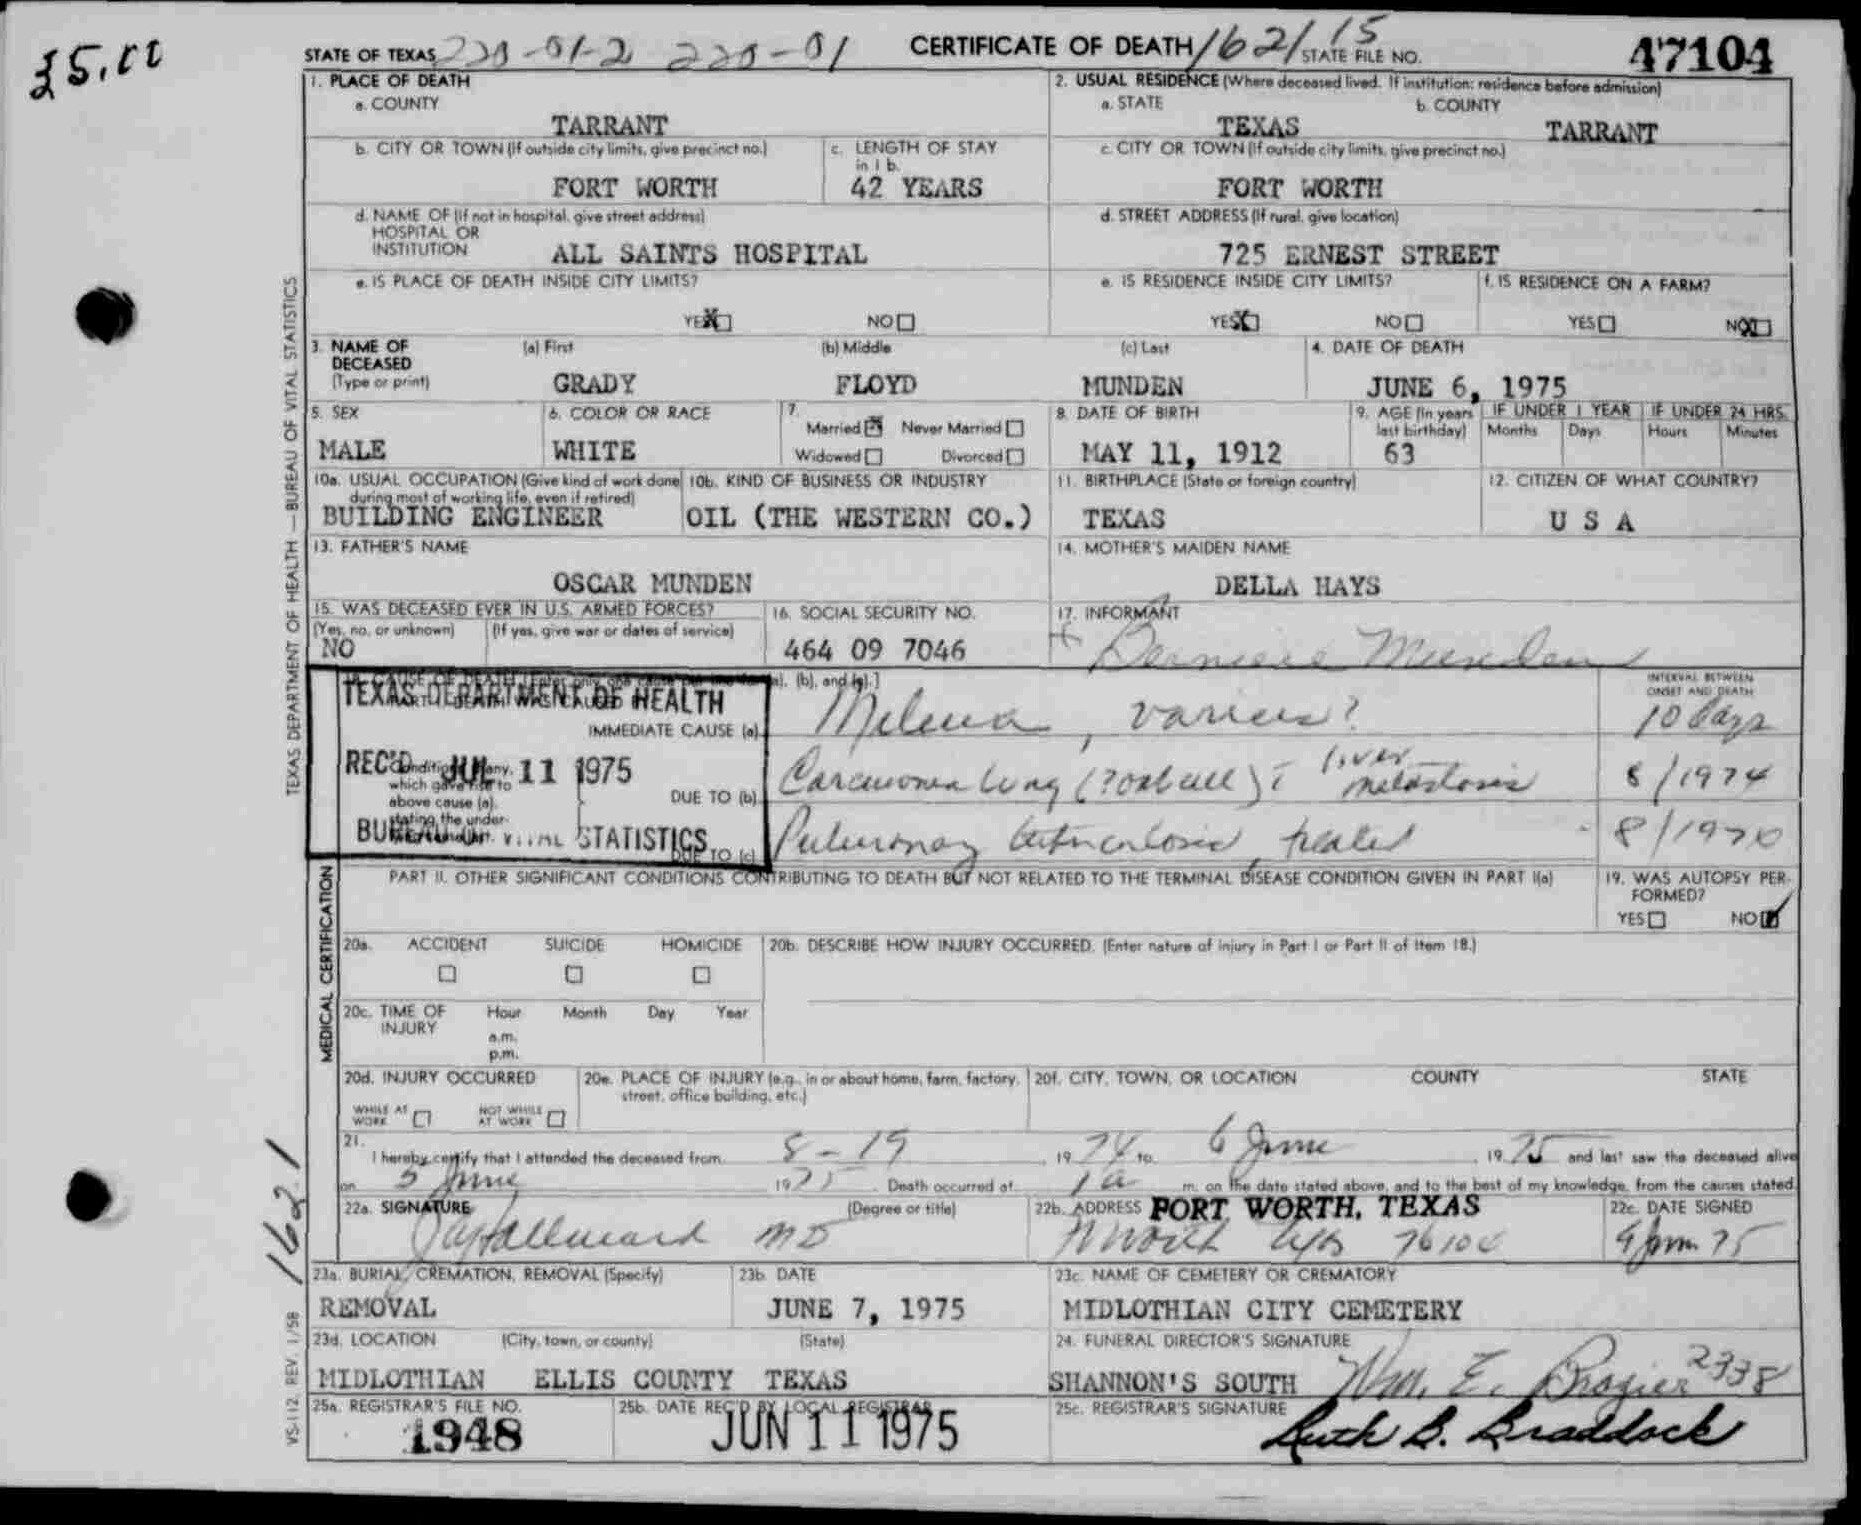 $5.00
STATE OF TEXAS 220-01-2 220-01 CERTIFICATE OF DEATH 162115 STATE FILE NO. 47104
1. PLACE OF DEATH
a. COUNTY
TARRANT
2. USUAL RESIDENCE (Where deceased lived. If institution: residence before admission)
a. STATE b. COUNTY
TEXAS TARRANT
b. CITY OR TOWN (If outside city limits, give precinct no.)
FORT WORTH
c. LENGTH OF STAY
in 1 b.
42 YEARS
c. CITY OR TOWN (If outside city limits, give precinct no.)
FORT WORTH
d. NAME OF (If not in hospital, give street address)
HOSPITAL OR
INSTITUTION ALL SAINTS HOSPITAL
d. STREET ADDRESS (If rural, give location)
725 ERNEST STREET
e. IS PLACE OF DEATH INSIDE CITY LIMITS?
YES X NO
e. IS RESIDENCE INSIDE CITY LIMITS?
YES X NO
f. IS RESIDENCE ON A FARM?
YES NO X
3. NAME OF
DECEASED
(Type or print)
(a) First (b) Middle (c) Last
GRADY FLOYD MUNDEN
4. DATE OF DEATH
JUNE 6, 1975
5. SEX
MALE
6. COLOR OR RACE
WHITE
7.
Married X Never Married
Widowed Divorced
8. DATE OF BIRTH
MAY 11, 1912
9. AGE (In years
last birthday)
63
IF UNDER 1 YEAR IF UNDER 24 HRS.
Months Days Hours Minutes
10a. USUAL OCCUPATION (Give kind of work done
during most of working life, even if retired)
BUILDING ENGINEER
10b. KIND OF BUSINESS OR INDUSTRY
OIL (THE WESTERN CO.)
11. BIRTHPLACE (State or foreign country)
TEXAS
12. CITIZEN OF WHAT COUNTRY?
U S A
13. FATHER'S NAME
OSCAR MUNDEN
14. MOTHER'S MAIDEN NAME
DELLA HAYS
15. WAS DECEASED EVER IN U.S. ARMED FORCES?
(Yes, no, or unknown) (If yes, give war or dates of service)
NO
16. SOCIAL SECURITY NO.
464 09 7046
17. INFORMANT
Berniece Munden
(b), and (c).]
TEXAS DEPARTMENT OF HEALTH
REC'D JUL 11 1975
BUREAU OF VITAL STATISTICS
Conditions, if any,
which gave rise to
above cause (a),
stating the under-
IMMEDIATE CAUSE (a) Melena, varices?
DUE TO (b) Carcinoma lung (? oat cell) c liver metastasis
DUE TO (c) Pulmonary tuberculosis, healed
INTERVAL BETWEEN
ONSET AND DEATH
10 days
8/1974
8/1970
PART II. OTHER SIGNIFICANT CONDITIONS CONTRIBUTING TO DEATH BUT NOT RELATED TO THE TERMINAL DISEASE CONDITION GIVEN IN PART I(a)
19. WAS AUTOPSY PER-
FORMED?
YES NO
20a. ACCIDENT SUICIDE HOMICIDE
20b. DESCRIBE HOW INJURY OCCURRED. (Enter nature of injury in Part I or Part II of Item 18.)
20c. TIME OF
INJURY
Hour Month Day Year
a.m.
p.m.
20d. INJURY OCCURRED
WHILE AT
WORK
NOT WHILE
AT WORK
20e. PLACE OF INJURY (e.g., in or about home, farm, factory,
street, office building, etc.)
20f. CITY, TOWN, OR LOCATION COUNTY STATE
21.
I hereby certify that I attended the deceased from 8-19 1974 to 6 June 1975 and last saw the deceased alive
on 5 June 1975. Death occurred at 1 a m. on the date stated above, and to the best of my knowledge, from the causes stated.
22a. SIGNATURE (Degree or title)
MD
22b. ADDRESS FORT WORTH, TEXAS
22c. DATE SIGNED
9 June 75
23a. BURIAL, CREMATION, REMOVAL (Specify)
REMOVAL
23b. DATE
JUNE 7, 1975
23c. NAME OF CEMETERY OR CREMATORY
MIDLOTHIAN CITY CEMETERY
23d. LOCATION (City, town, or county) (State)
MIDLOTHIAN ELLIS COUNTY TEXAS
24. FUNERAL DIRECTOR'S SIGNATURE
SHANNON'S SOUTH Wm. E. Brazier 2338
25a. REGISTRAR'S FILE NO.
1948
25b. DATE REC'D BY LOCAL REGISTRAR
JUN 11 1975
25c. REGISTRAR'S SIGNATURE
Ruth B. Braddock
TEXAS DEPARTMENT OF HEALTH — BUREAU OF VITAL STATISTICS
MEDICAL CERTIFICATION
1621
VS-112 REV. 1/58